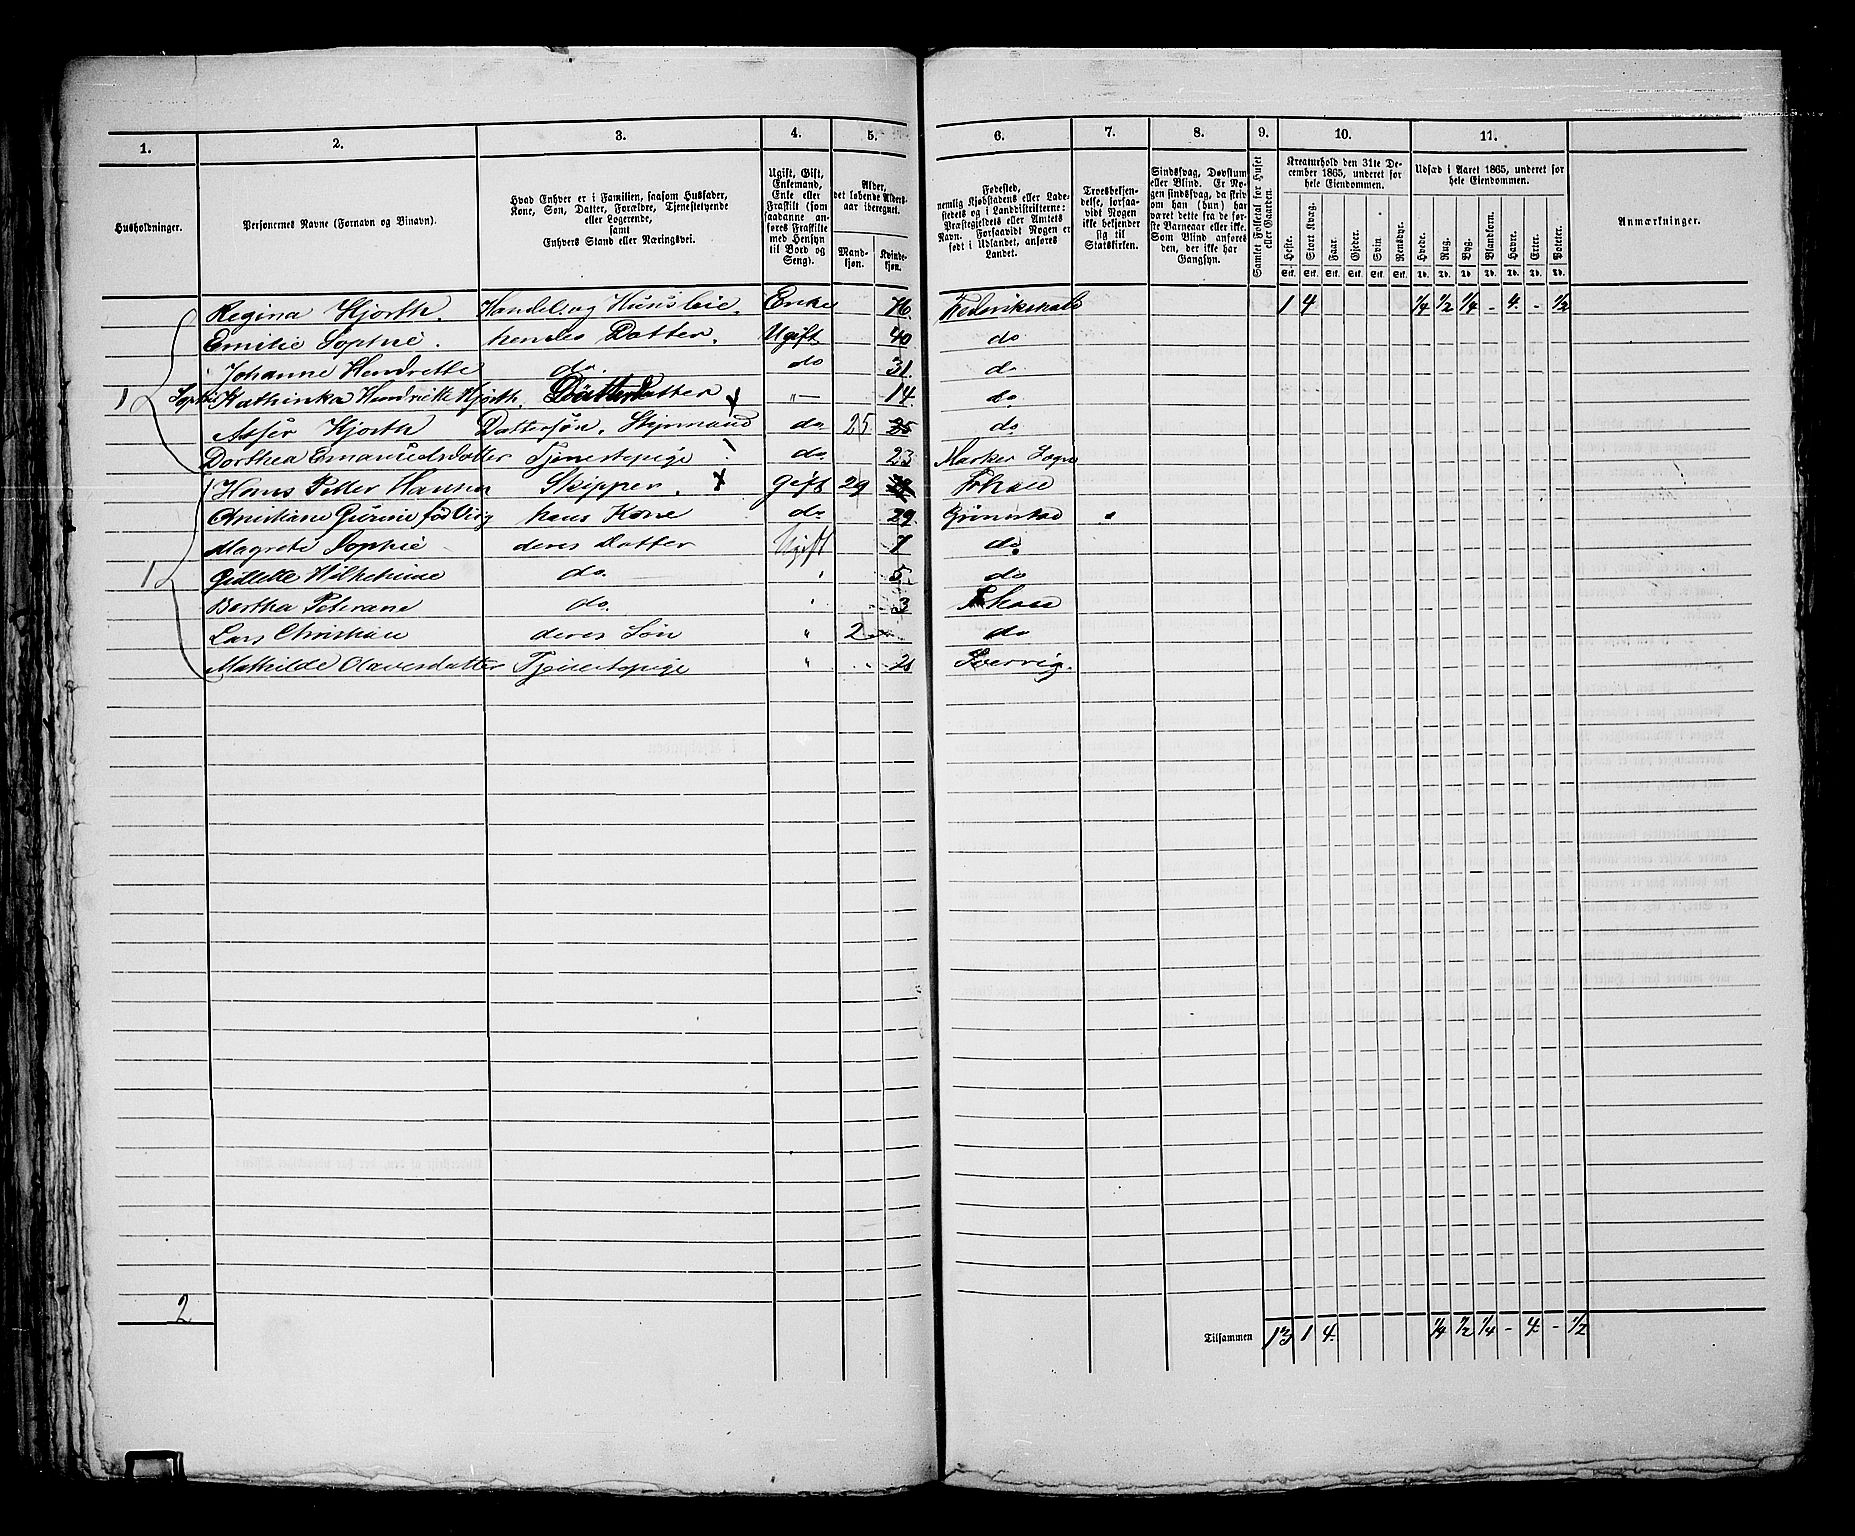 1. 2. 3. 4. 5. 6. 7. 8. 9. 10. 11.
Husholdninger.
Personernes Navne (Fornavn og Binavn).
Hvad Enhver er i Familien, saasom Husfader,
Kone, Søn, Datter, Forældre, Tjenestetyende
eller Logerende,
samt
Enhvers Stand eller Næringsvei.
Ugift, Gift,
Enkemand,
Enke eller
Fraskilt (som
saadanne an-
føres Fraskilte
med Hensyn
til Bord og
Seng).
Alder,
det løbende Alders-
aar iberegnet.
Mand-
kjøn.
Kvinde-
kjøn.
Fødested,
nemlig Kjøbstadens eller Lade-
stedets og i Landdistrikterne:
Præstegjeldets eller Amtets
Navn. Forsaavidt Nogen er
født i Udlandet, anføres
Landet.
Troesbekjen-
delse, forsaa-
vidt Nogen
ikke bekjender
sig til
Statskirken.
Sindssvag, Døvstum
eller Blind. Er No-
gen sindssvag, da skriv
om han (hun) har
været dette fra de før-
ste Barneaar eller ikke.
Som Blind anføres
den, der ikke har
Gangsyn.
Samlet Folketal for Huset
eller Gaarden.
Kreaturhold den 31te De-
cember 1865, underet for
hele Eiendommen.
Heste. Stort Kvæg. Faar. Gjeder. Svin. Rensdyr.
Stk. Stk. Stk. Stk. Stk. Stk.
Udsæd i Aaret 1865, underet for
hele Eiendommen.
Hvede. Rug. Byg. Blandkorn. Havre. Erter. Poteter.
Td. Td. Td. Td. Td. Td. Td.
Anmærkninger.
Regina Hjorth. Handel og Huusleie. Enke 76 Frederikshald 1 4 1/4 1/2 1/4 - 4. - 1/2
Emilie Sophie. hendes Datter. Ugift 40 do
Johanne Hendrette do. do 31. do
1 Sophie Kathinka Hendrikke Hjorth. Datterdatter "— 14. do
Asser Hjorth Dattersøn, Styrmand do 25 25 do
Dorthea Emanuelsdatter Tjenestepige do 23 Marker Sogn
Hans Petter Hansen Skipper. Gift 29 Frhald
Christiane Gurine hans Kone do 29. Grimstad
Magrete Sophie deres Datter Ugift 7 do
1 Wilhelmine do. " 5. do
Bertha Peterane do. " 3 Frhald
Lars Christian deres Søn " 2 do
Mathilde Olavesdatter Tjenestepige "
2
Tilsammen 13 1 4. 1/4 1/2 1/4 - 4 - 1/2